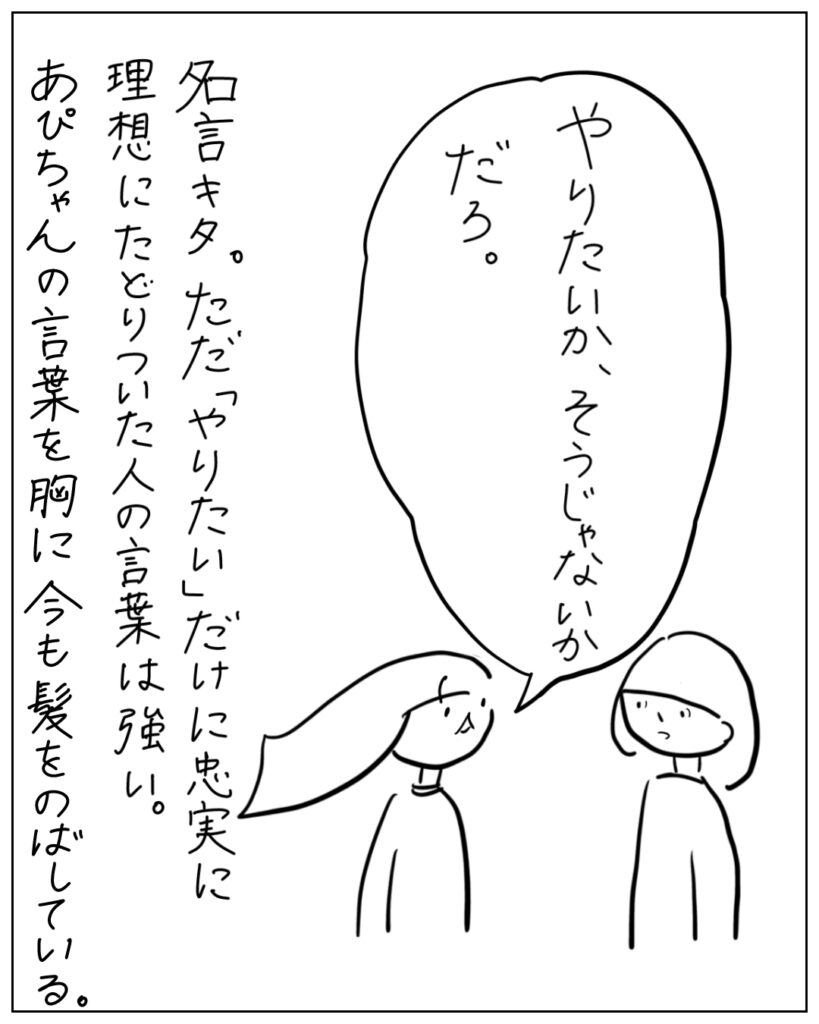 やりたいか、そうじゃないか
だろ。
名言キタ。ただ「やりたい」だけに忠実に
理想にたどりついた人の言葉は強い。
あぴちゃんの言葉を胸に今も髪をのばしている。